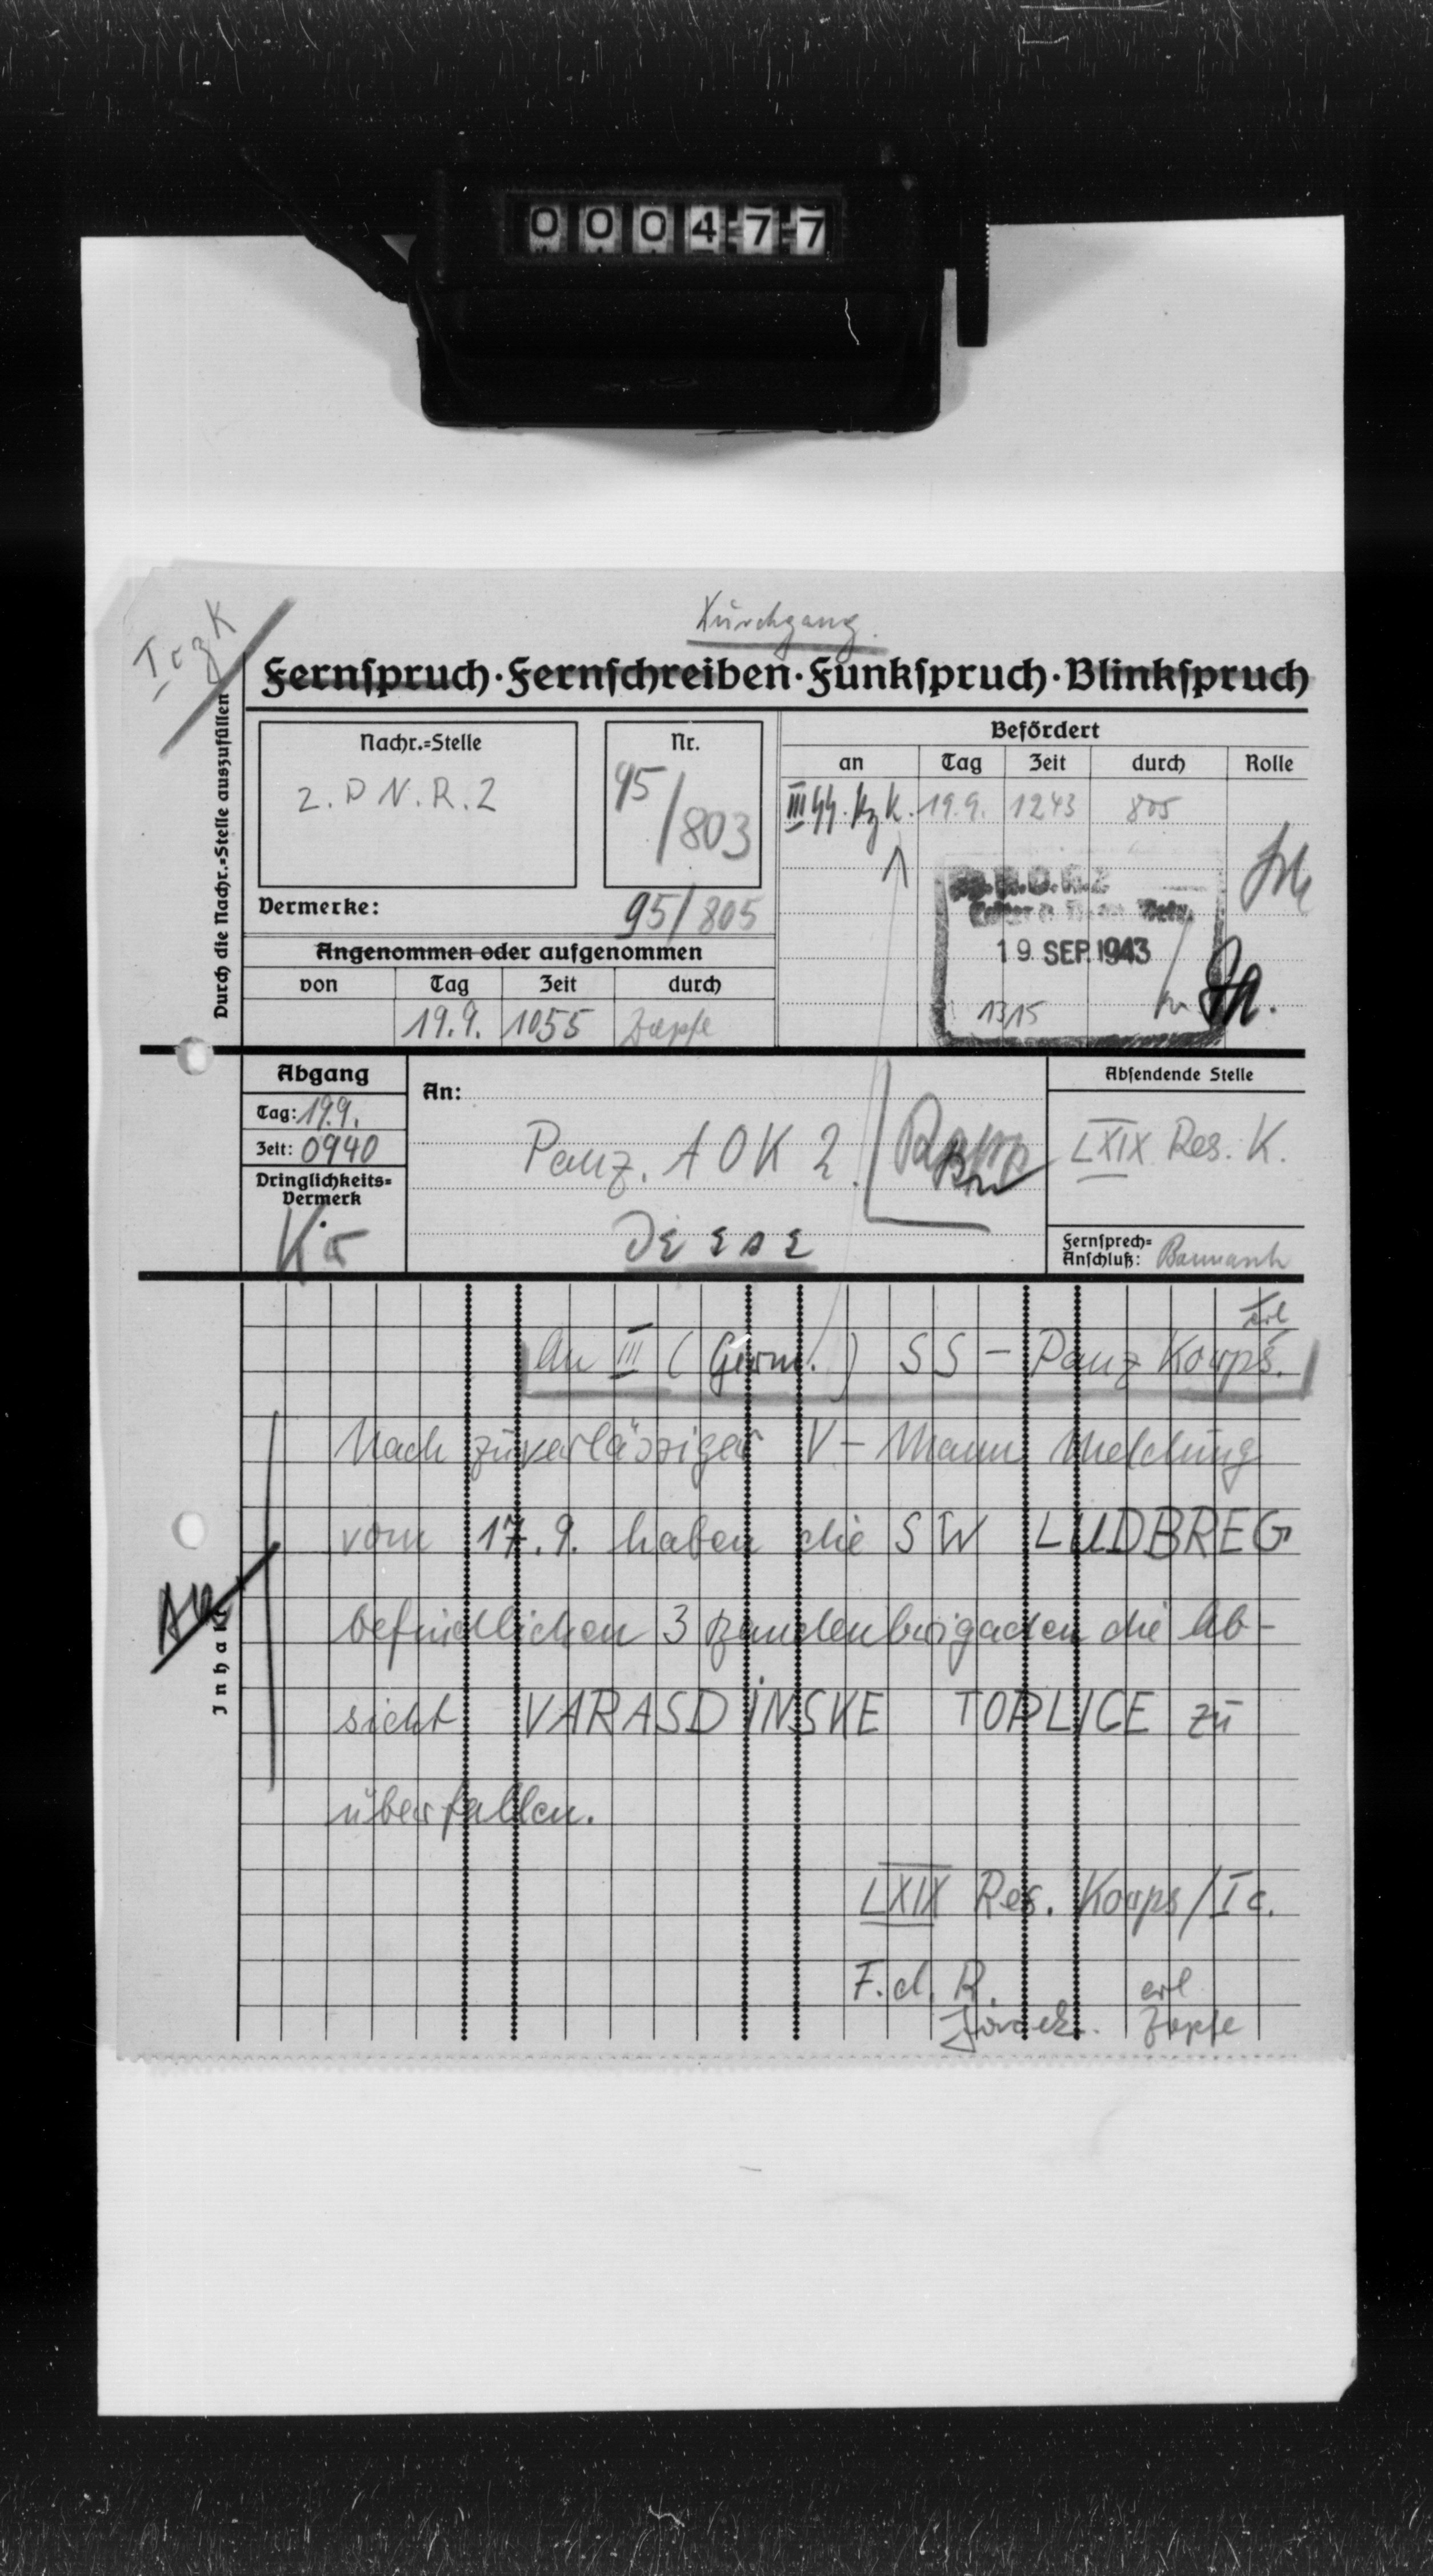 000477
Durchgang.
Fernspruch · Fernschreiben · Funkspruch · Blinkspruch
Durch die Nachr.=Stelle auszufüllen
Nachr.=Stelle
2. P N. R. 2
Nr.
95/803
Vermerke:
95/805
Angenommen oder aufgenommen
von Tag Zeit durch
19.9. 1055 Zapfe
Befördert
an Tag Zeit durch Rolle
III SS. Pz. K. 19.9. 1243 805
19 SEP. 1943
1315
Abgang
Tag: 19.9.
Zeit: 0940
Dringlichkeits=
Vermerk
Kr
An:
Panz. A O K 2.
Absendende Stelle
LXIX Res. K.
Fernsprech=
Anschluß:
Inhalt
erl
An III (Germ.) SS - Panz Korps.
Nach zuverlässiger V - Mann Meldung
vom 17.9. haben die SW LUDBREG
befindlichen 3 Bandenbrigaden die Ab-
sicht VARASDINSKE TOPLICE zu
überfallen.
LXIX Res. Korps/Ic.
F. d. R. erl
Zapfe